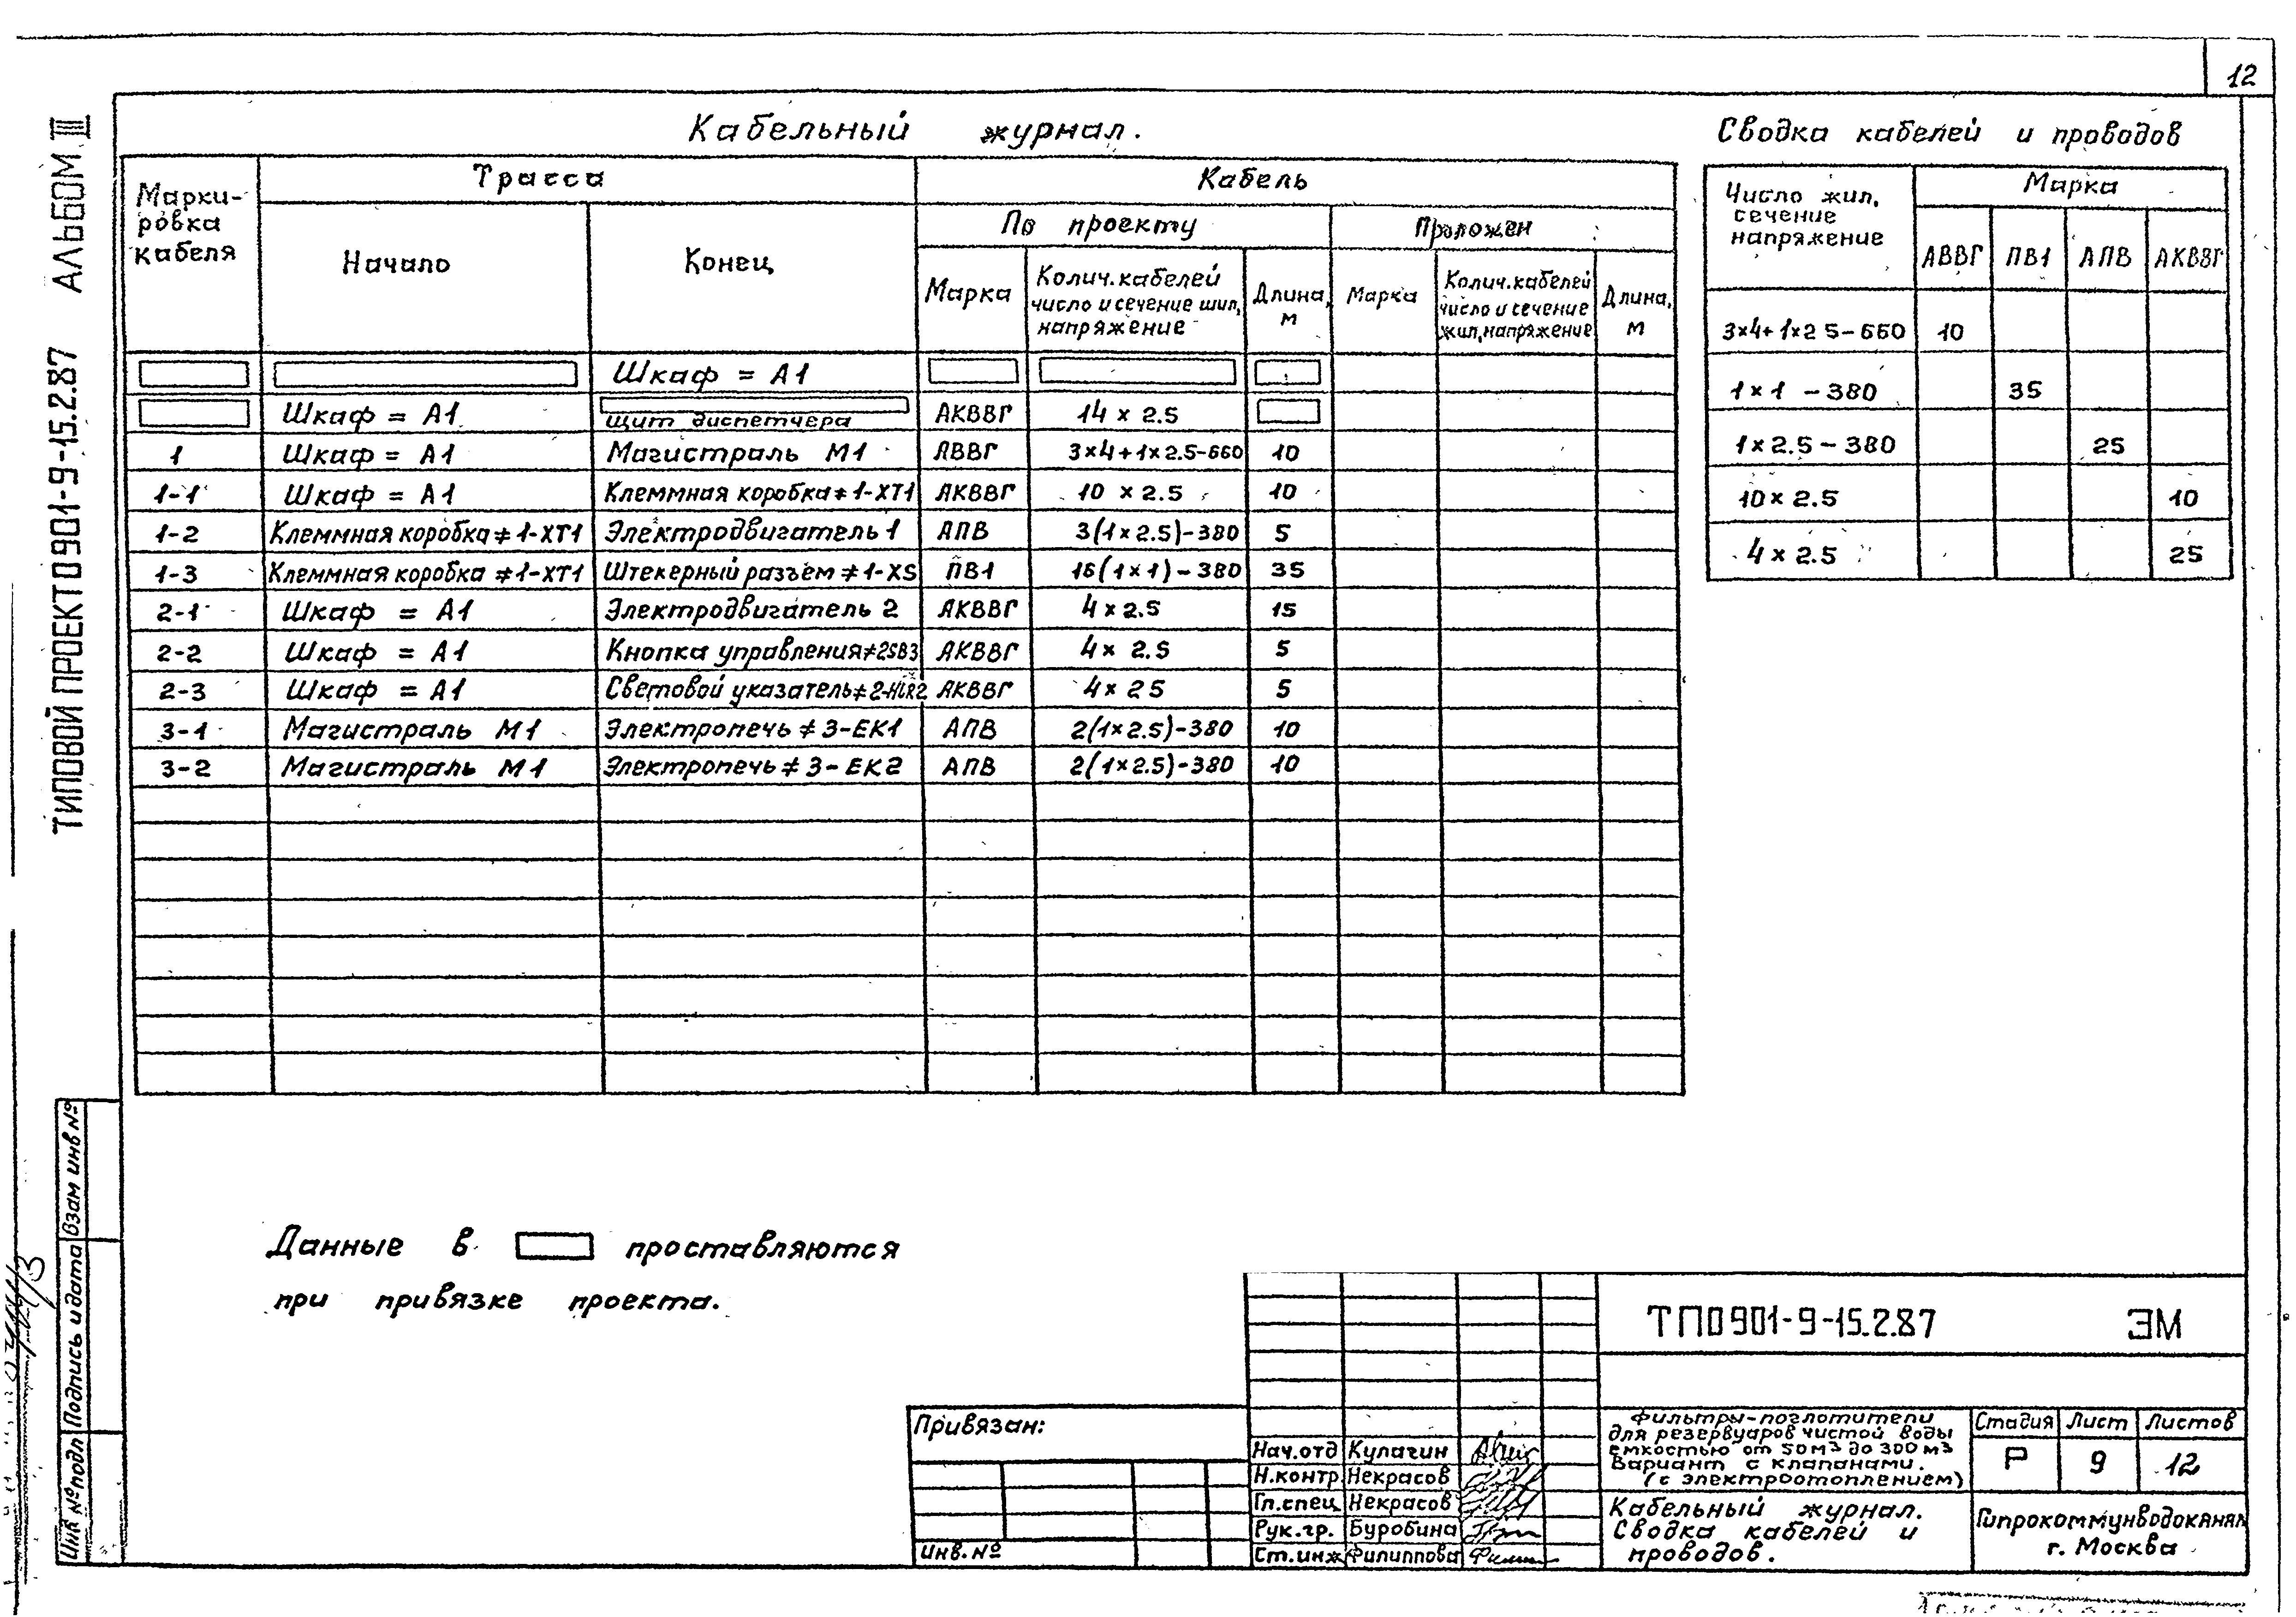 12
ТИПОВОЙ ПРОЕКТ 0901-9-15.2.87 АЛЬБОМ III
Кабельный журнал.
Марки-
ровка
кабеля
Трасса
Кабель
Начало
Конец
По проекту
Проложен
Марка
Колич.кабелей
число и сечение шил,
напряжение
Длина,
м
Марка
Колич.кабелей
число и сечение
жил,напряжение
Длина,
м
Шкаф = А1
Шкаф = А1 щит диспетчера АКВВГ 14 × 2.5
1 Шкаф = А1 Магистраль М1 АВВГ 3×4+1×2.5-660 10
1-1 Шкаф = А1 Клеммная коробка ≠ 1-ХТ1 АКВВГ 10 × 2.5 10
1-2 Клеммная коробка ≠ 1-ХТ1 Электродвигатель 1 АПВ 3(1×2.5)-380 5
1-3 Клеммная коробка ≠ 1-ХТ1 Штекерный разъем ≠ 1-XS ПВ1 16(1×1)-380 35
2-1 Шкаф = А1 Электродвигатель 2 АКВВГ 4×2.5 15
2-2 Шкаф = А1 Кнопка управления ≠ 2SB3 АКВВГ 4× 2.5 5
2-3 Шкаф = А1 Световой указатель ≠ 2-HLR2 АКВВГ 4× 25 5
3-1 Магистраль М1 Электропечь ≠ 3-ЕК1 АПВ 2(1×2.5)-380 10
3-2 Магистраль М1 Электропечь ≠ 3-ЕК2 АПВ 2(1×2.5)-380 10
Сводка кабелей и проводов
Число жил,
сечение
напряжение
Марка
АВВГ ПВ1 АПВ АКВВГ
3×4+1×2 5-660 10
1×1 -380 35
1×2.5-380 25
10×2.5 10
4×2.5 25
Данные в проставляются
при привязке проекта.
Взам инв №
Подпись и дата
Инв № подл
Привязан:
Инв. №
Нач.отд Кулагин
Н.контр. Некрасов
Гл.спец Некрасов
Рук.гр. Буробина
Ст.инж Филиппова
ТП0901-9-15.2.87 ЭМ
Фильтры-поглотители
для резервуаров чистой воды
емкостью от 50м³ до 300м³
Вариант с клапанами.
(с электроотоплением)
Стадия Лист Листов
Р 9 12
Кабельный журнал.
Сводка кабелей и
проводов.
Гипрокоммунводоканал
г. Москва